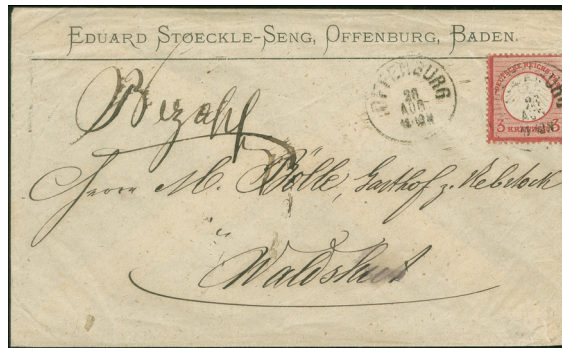 EDUARD STOECKLE-SENG, OFFENBURG, BADEN.
OFFENBURG
AUG
3 KREUZER 3
Bezahlt
Herrn M. Bölle, Gasthof z. Rebstock
in
Waldshut